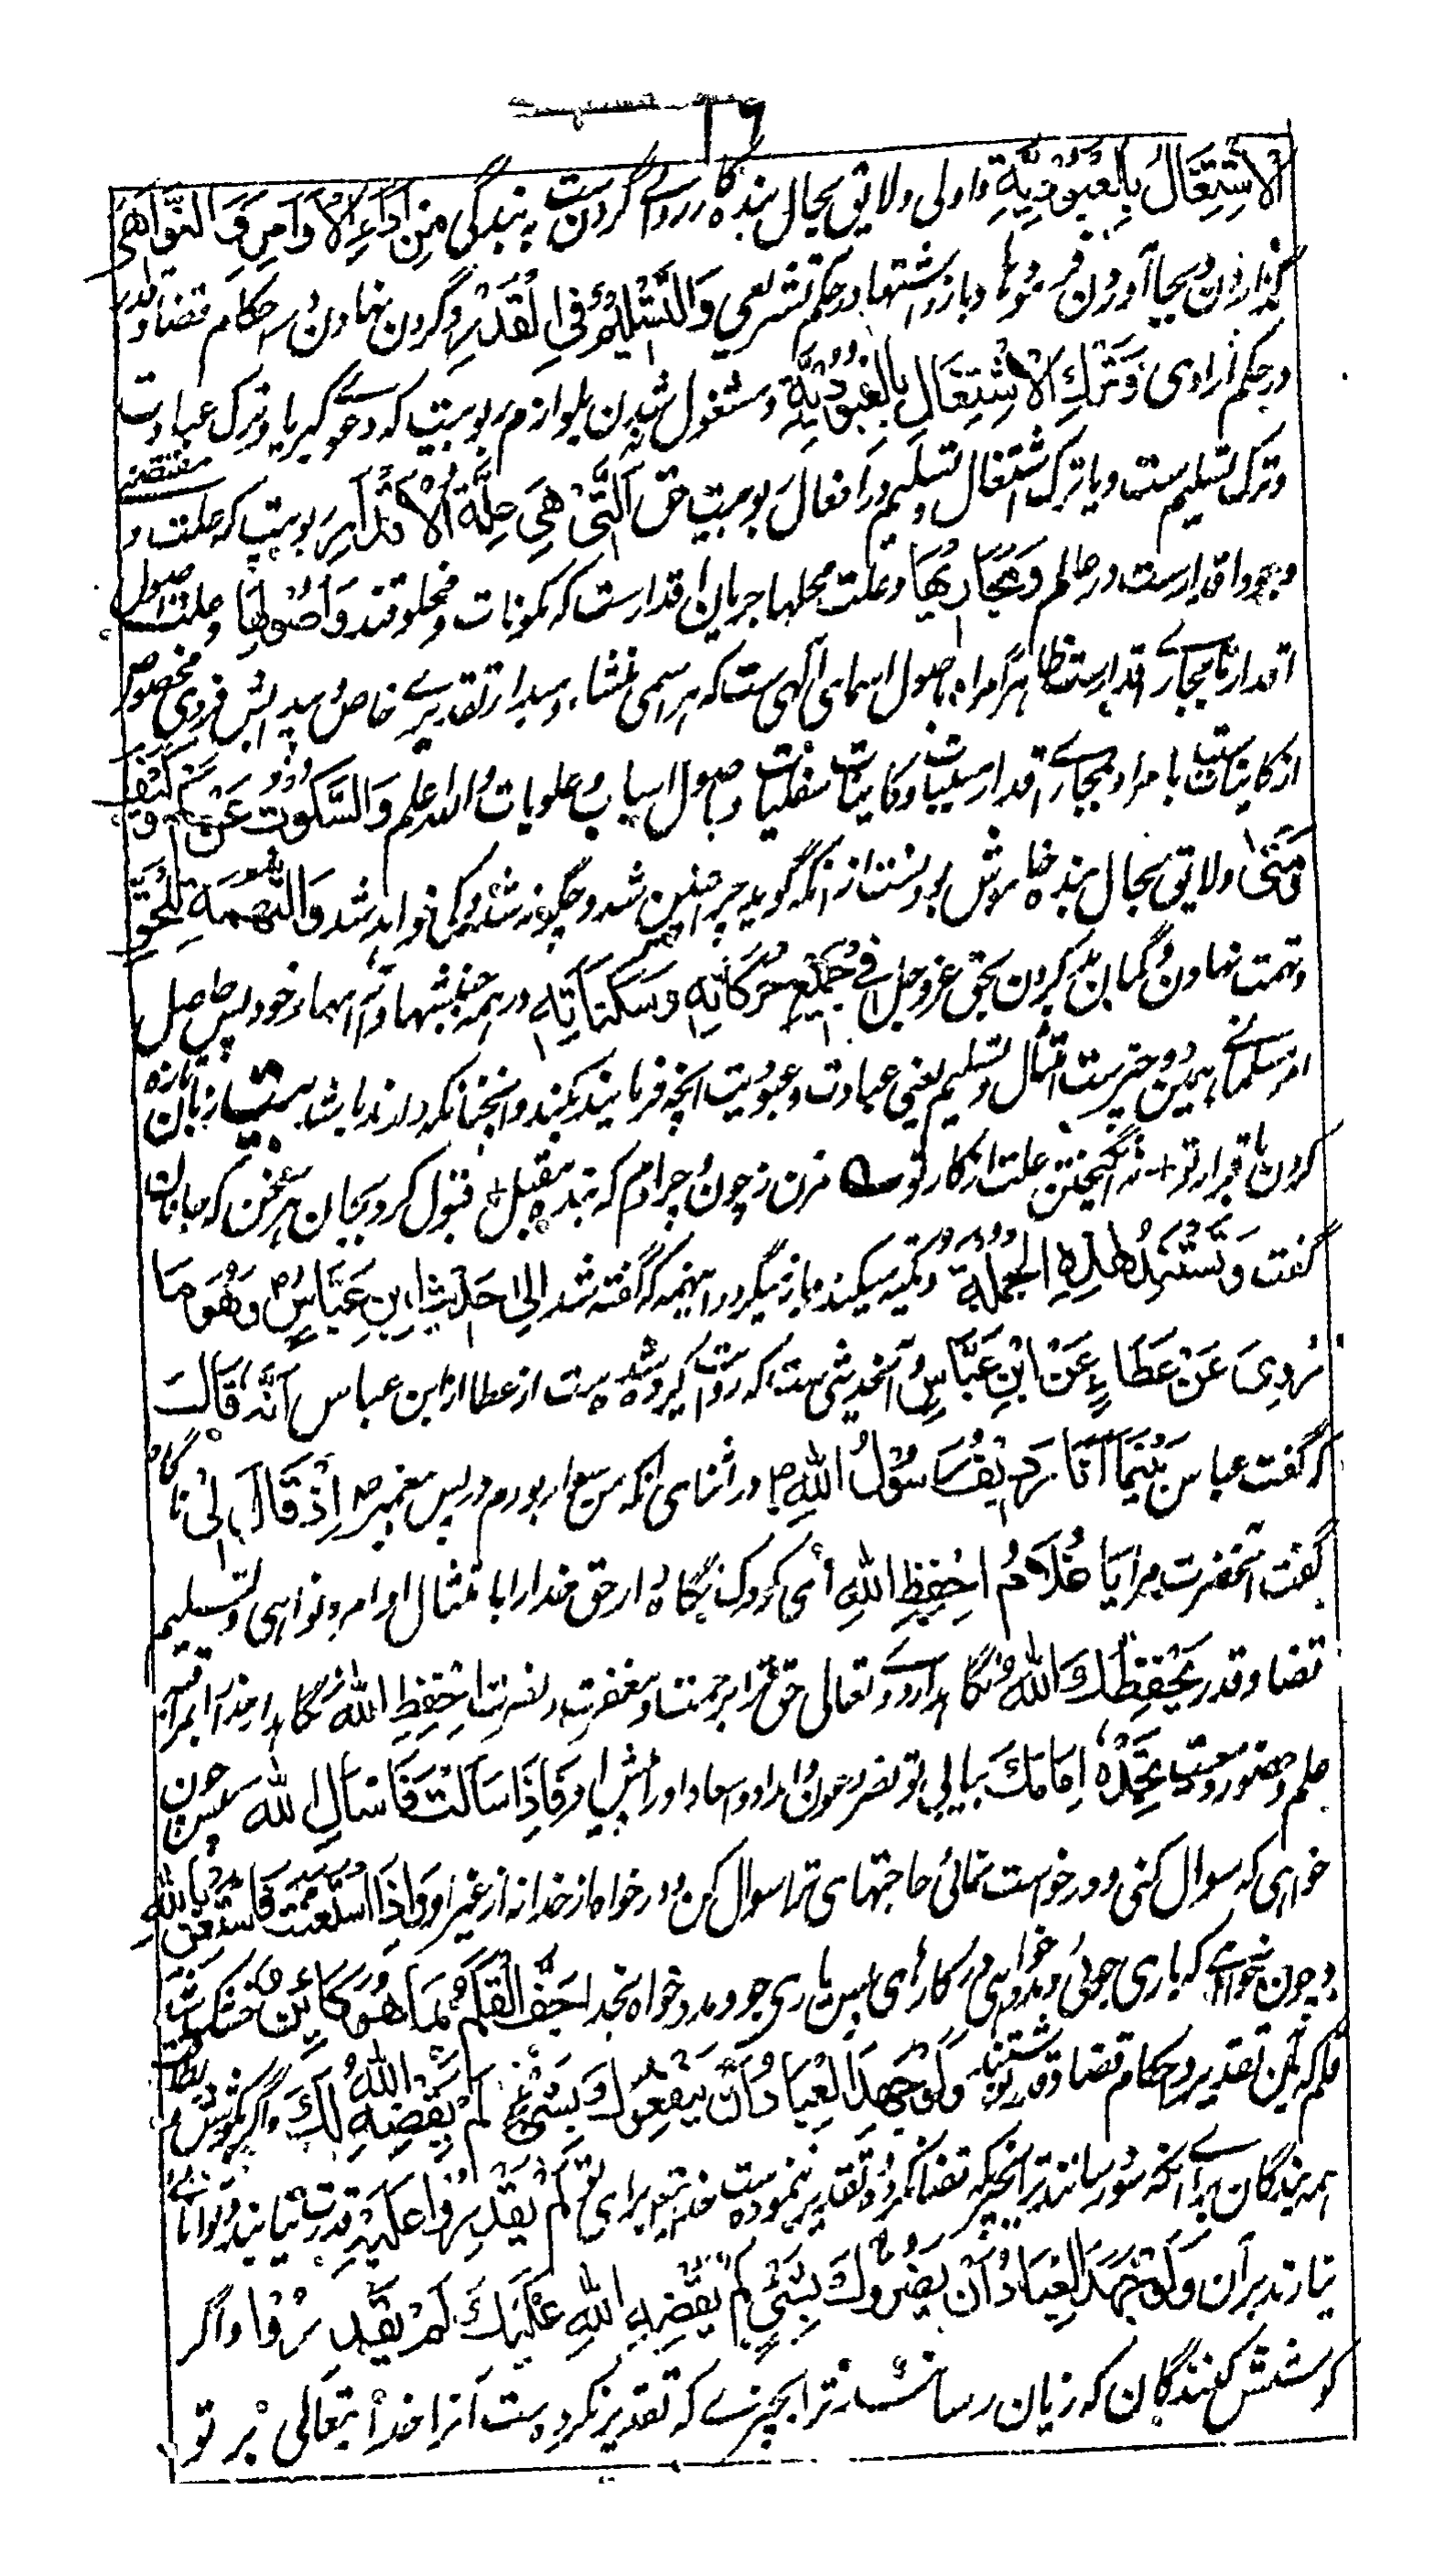 الْاِشْتِغَالُ بِالْعُبُوْدِيَّةِ و اولی و لائق بحال بنده کار روائے کردن ست به بندگی مِنْ اَدَاءِ الْاَوَامِرِ وَ النَّوَاهِیْ
گزاردن و بجا آوردن فرمودها و باز داشتها در حکم تشریعی وَ التَّسْلِيْمُ فِی الْقَدَرِ و گردن نهادن در احکام قضا و قدر
در حکم ارادی وَ تَرْكِ الْاِشْتِغَالِ بِالْعُبُوْدِيَّةِ و مشغول شدن بلوازم ربوبیت که دعوی کبریا و ترک عبادت
و ترک تسلیم ست و یا ترک اشتغال و تسلیم در افعال ربوبیت حق الَّتِیْ هِیَ عِلَّةُ الْاَقْدَارِ ربوبیت که علت و مقتضی
وجود اقدارست در عالم وَ مَجَارِيْهَا و علت محلها جریان اقدارست که مکونات و مخلوقتند وَ اُصُوْلِهَا و علت اصول
اقدار تا مجارے اقدارست ظاهرا مراد باصول اسمای الهی ست که هر اسمی منشاء و مبداء تقدیرے خاص و پیدایش فردی مخصوص
از کاینات ست یا مراد بمجارے اقدار مسببات و کاینات سفلیات و باصول اسباب و علویات والله اعلم وَ السُّكُوْتُ عَنْ لِمَ وَ كَيْفَ
وَ مَتٰی و لایق بحال بنده خاموش بودنست از آنکه گوید چرا چنین شد و چگونه شد و کی خواهد شد وَ التُّهْمَةِ لِلْحَقِّ
و تهمت نهادن و گمان بد کردن بحق عز و جل فِیْ جَمِيْعِ حَرَكَاتِهٖ وَ سَكَنَاتِهٖ در همه جنبشها و آرامها خود پس حاصل
امر مسلمانے همین دو چیزست امتثال و تسلیم یعنی عبادت و عبودیت انچه فرمایند بکند و انچنانکه دارند باشد بیت زبان تازه
کردن باقرار تو + نه انگیختن علت از کار تو مزن ز چون و چرا دم که بنده مقبل + قبول کرد بجان هر سخن که جانان
گفت وَ تَسْتَنِدُ هٰذِهِ الْجُمْلَةُ و تکیه میکند و باز میگردد اینهمه که گفته شد اِلٰی حَدِيْثِ ابْنِ عَبَّاسٍ وَ هُوَ مَا
رُوِیَ عَنْ عَطَاءٍ عَنْ ابْنِ عَبَّاسٍ و آنحدیثی ست که روایت کرده شده ست از عطا از ابن عباس اَنَّهٗ قَالَ
که گفت عباس بَيْنَمَا اَنَا رَدِيْفُ رَسُوْلِ اللهِ در اثنای آنکه من سوار بودم در پس پیغمبر اِذْ قَالَ لِیْ ناگاه
گفت آنحضرت مرا يَا غُلَامُ اِحْفَظِ اللهَ ای کودک نگاه دار حق خدا را بامتثال اوامر و نواهی و تسلیم
قضا و قدر يَحْفَظْكَ اللهُ نگاه دارد و تعالی حق ترا برحمت و مغفرت و نصرت اِحْفَظِ اللهَ نگاه دار خدا را بمراقبه
علم و حضور و معیت تَجِدْهُ اَمَامَكَ بیابی تو نصر و عون و امداد و اسعاد او را پیش فَاِذَا سَاَلْتَ فَاسْاَلِ اللهَ پس چون
خواهی که سوال کنی و درخواست نمائی حاجتهای ترا سوال کن و درخواه از خدا نه از غیر او وَ اِذَا اسْتَعَنْتَ فَاسْتَعِنْ بِاللهِ
و چون خواهے که یاری جوئی و مدد خواهی در کارهای پس یاری جو و مدد خواه بخدا جَفَّ الْقَلَمُ بِمَا هُوَ كَائِنٌ خشک شده است
قلم که باین تقدیر و احکام قضا و قدر نوشته وَ لَوْ جَهَدَ الْعِبَادُ اَنْ يَنْفَعُوْكَ بِشَیْءٍ لَمْ يَقْضِهِ اللهُ لَكَ و اگر کوشش
همه بندگان برانکه سود رسانند ترا بچیزیکه قضا نکرده و تقدیر ننموده ست خدا برای تو لَمْ يَقْدِرُوْا عَلَيْهِ قدرت نیابند و توانائے
نیارند بر آن وَ لَوْ جَهَدَ الْعِبَادُ اَنْ يَضُرُّوْكَ بِشَیْءٍ لَمْ يَقْضِهِ اللهُ عَلَيْكَ لَمْ يَقْدِرُوْا و اگر
کوشش کنند بندگان که زیان رسانند ترا بچیزے که تقدیر نکرده ست آنرا خدا تعالی بر تو